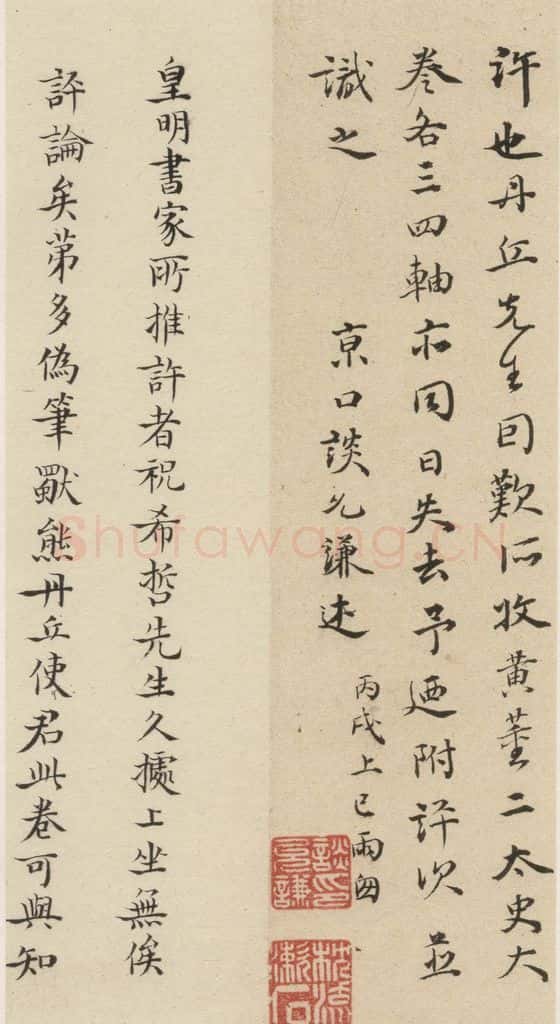 許也丹丘先生因歎所收黃董二太史大
卷各三四軸亦同日失去予迺附詳次並
識之 京口談允謙述
丙戌上巳雨囱
談允謙印
枕流漱石
皇明書家所推許者祝希哲先生久擄上坐無俟
評論矣第多偽筆獸熊丹丘使君此卷可與知
Shufawang.CN